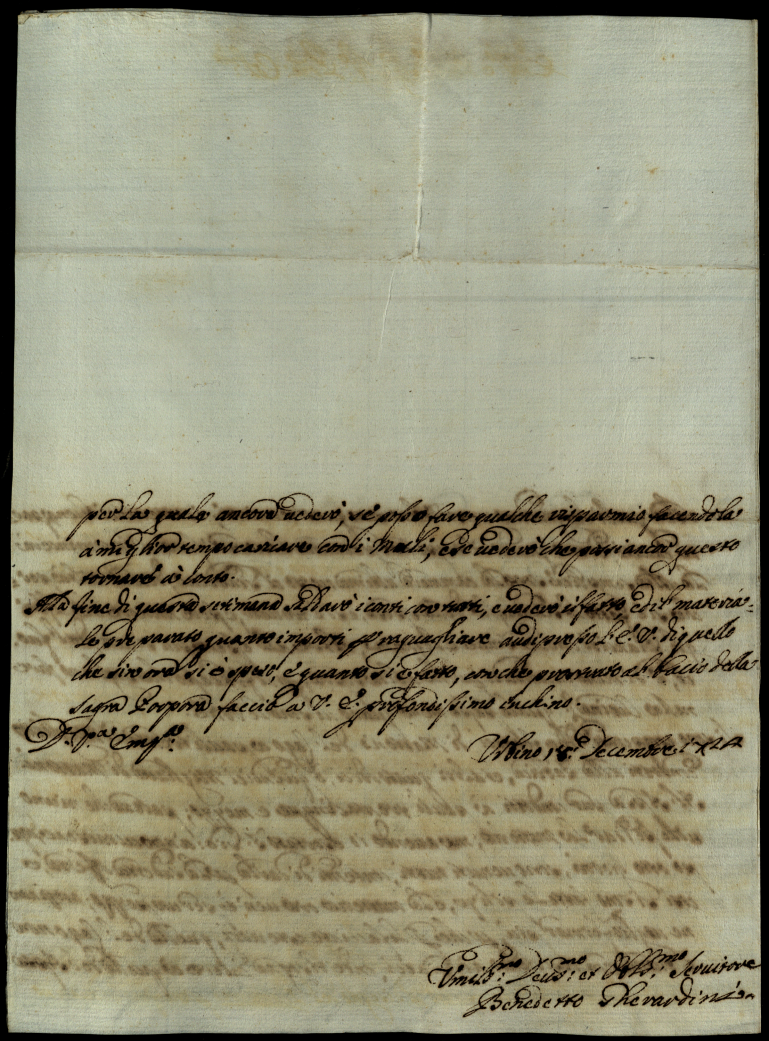 per la quale ancora vederò, se posso fare qualche risparmio facendola
a miglior tempo caricare con li Muli, e se vederò che passi ancor questo
tornare à conto.
Alla fine di questa setimana saldarò i conti con tutti, e vederò il fatto, ed il materia=
le preparato quanto importi, p raguagliare audipresso l'E. V. di quello
che sin ora si è speso, e quanto si è fatto, con che prostrato al bacio della
sagra Porpora faccio a V. E. profondissimo inchino.
D. V.ra Em.za
Urbino 18 Decembre 1724
Umiliss.mo Devt.mo et Obblg.mo Servitore
Benedetto Gherardini